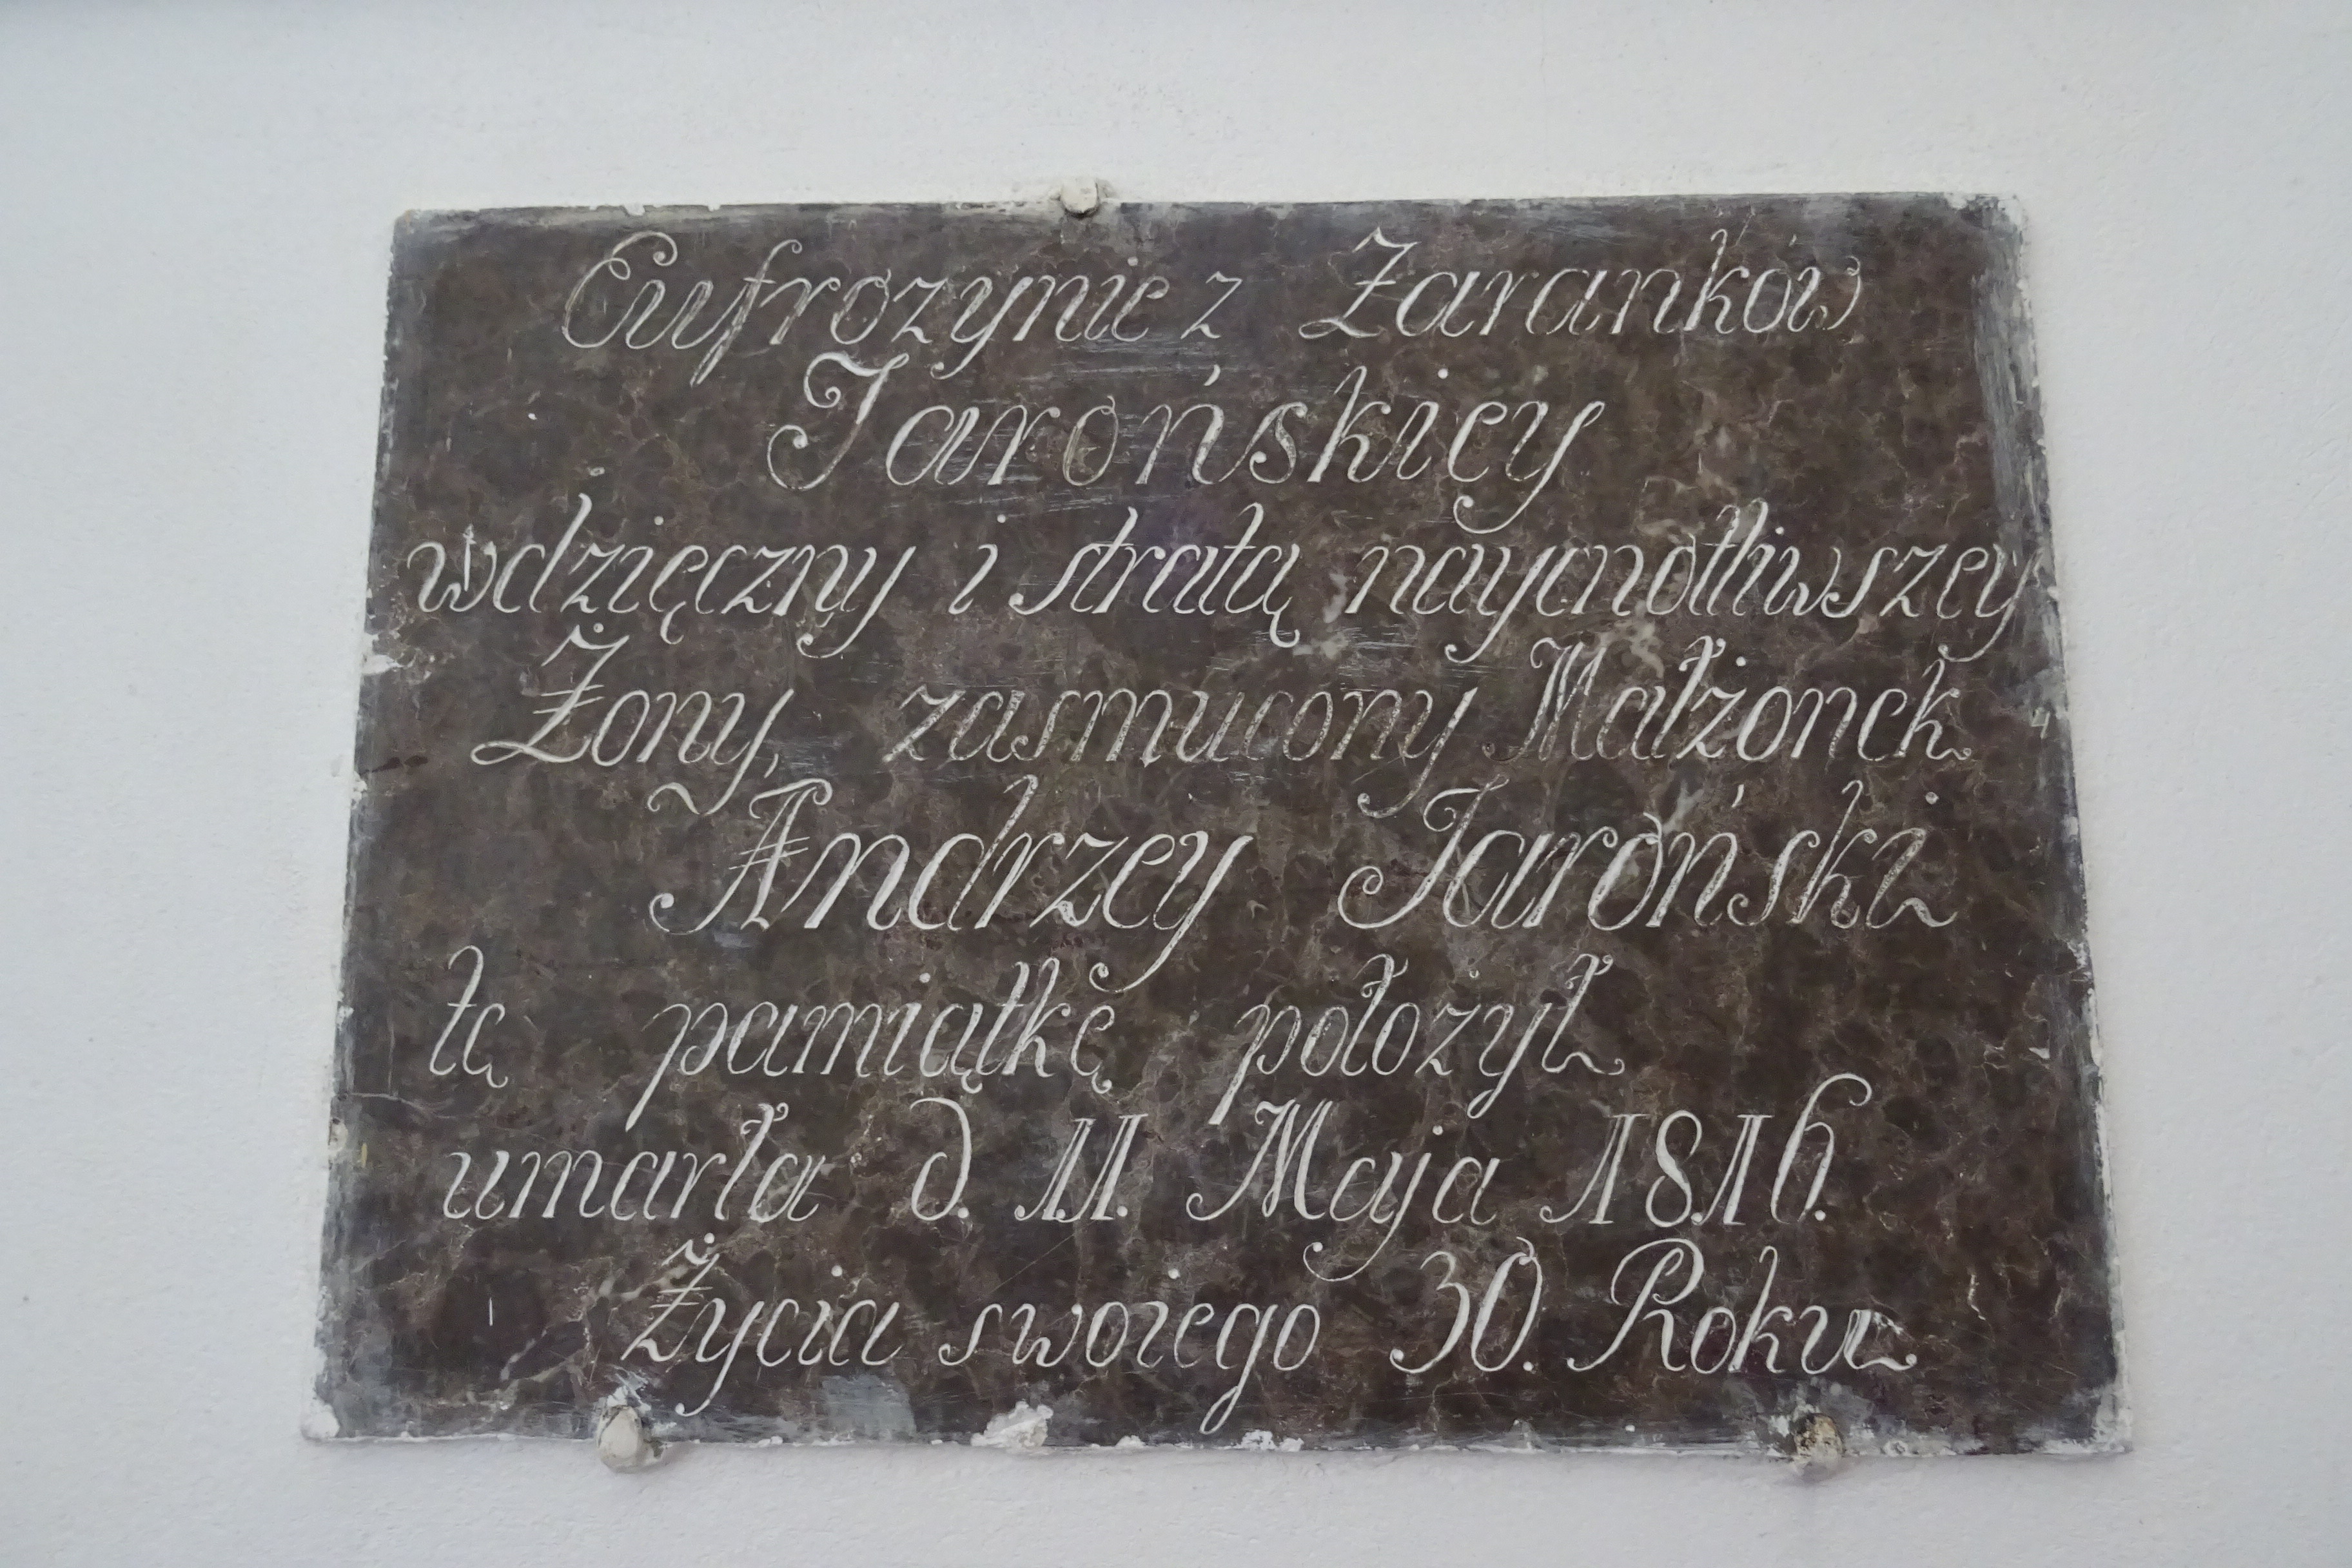 Eufrozynie z Zaranków
Jarońskiey
wdzięczny i stratą naycnotliwszey
Żony, zasmucony Małżonek
Andrzey Jaroński
tą pamiątkę położył
umarła d. 11. Maja 1816.
Życia swoiego 30. Roku